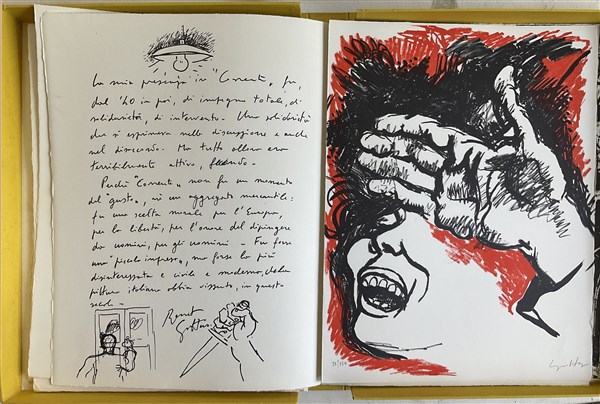 La mia presenza in "Corrente„ fu,
dal '40 in poi, di impegno totale, di
solidarietà, di intervento. Una solidarietà
che si esprimeva nella discussione e anche
nel disaccordo. Ma tutto allora era
terribilmente attivo, fecondo.
Perché "Corrente„ non fu un momento
del "gusto„, né un aggregato mercantile:
fu una scelta morale per l'Europa,
per la libertà, per l'onore del dipingere
da uomini, per gli uomini - Fu forse
una "piccola impresa„, ma forse la più
disinteressata e civile e moderna, che la
pittura italiana abbia vissuto, in questo
secolo -
Renato
Guttuso